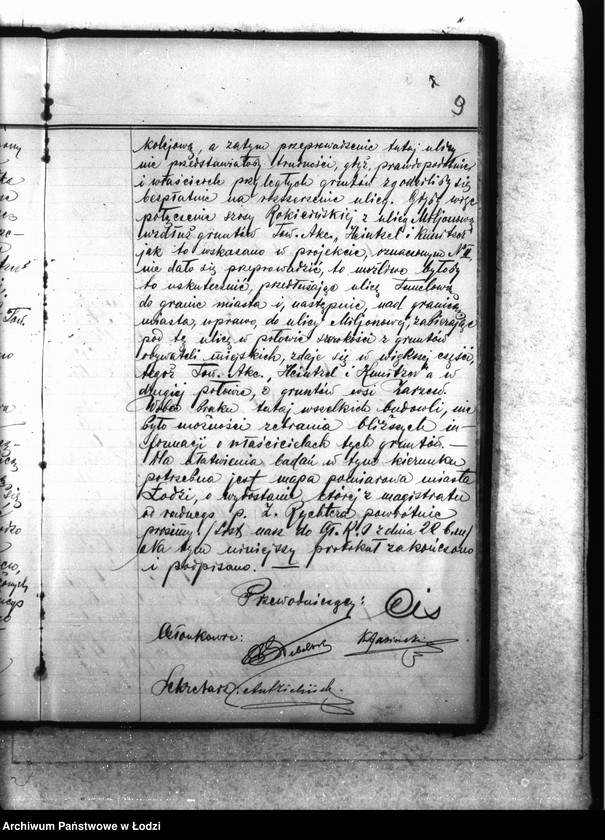 9
kolejową, a zatym przeprowadzenie tutaj ulicy
nie przedstawiałoby trudności, gdyż, prawdopodobnie
i właściciele przyległych gruntów zgodziliby się
bezpłatnie na rozszerzenie ulicy. Gdyby więc
połączenie szosy Rokicińskiej z ulicą Miljonową
wzdłuż gruntów Tow. Akc. „Heintzel i Kunitzer"
jak to wskazano w projekcie, oznaczonym № II
nie dało się przeprowadzić, to możliwe byłoby
to uskutecznić, przedłużając ulicę Tunelową
do granic miasta i, następnie, nad granicą
miasta, wprawo, do ulicy Miljonowej, zabierając
pod tę ulicę w połowie szerokości z gruntów
obywateli miejskich, zdaje się w większej części,
tegoż Tow. Akc. „Heintzel i Kunitzer" a w
drugiej połowie, z gruntów wsi Zarzew.
Wobec braku tutaj wszelkich budowli, nie
było możności zebrania bliższych in-
formacji o właścicielach tych gruntów. —
Dla ułatwienia badań w tym kierunku
potrzebna jest mapa pomiarowa miasta
Łodzi, o wydostanie której z magistratu
radnego p. Z. Rychtera powtórnie
prosimy! /List nasz do z dnia 22 b.m/
Na tym niniejszy protokuł zakończono
i podpisano. —
Przewodniczący:
Członkowie:
K. Jasiński
Sekretarz
Tow.
się
Archiwum Państwowe w Łodzi